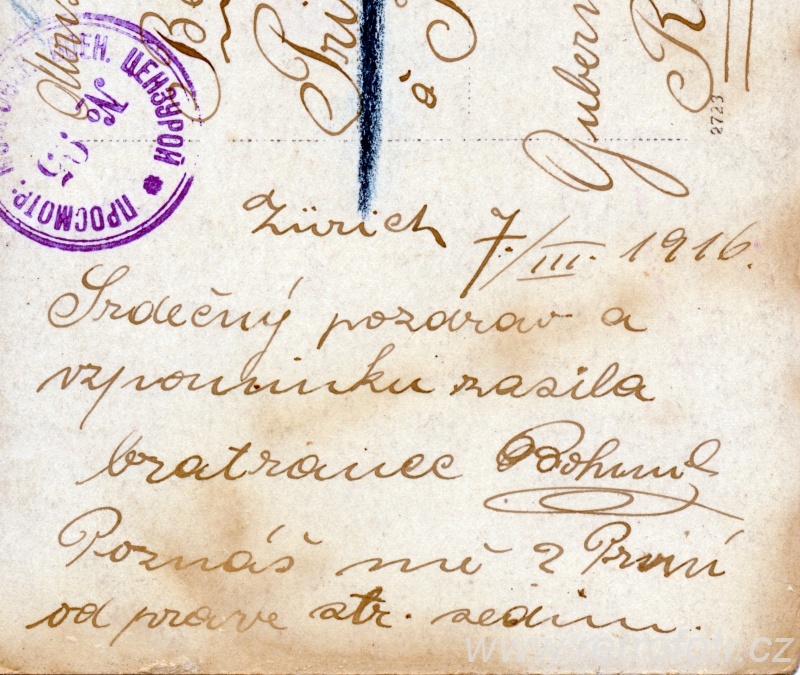 ПРОСМОТР. ВОЕН. ЦЕНЗУРОЙ
№
Gubern
2723
Zürich 7./III. 1916.
Srdečný pozdrav a
vzpomínku zasila
bratranec Bohumil
Poznáš mě ? První
od prave str. sedím.